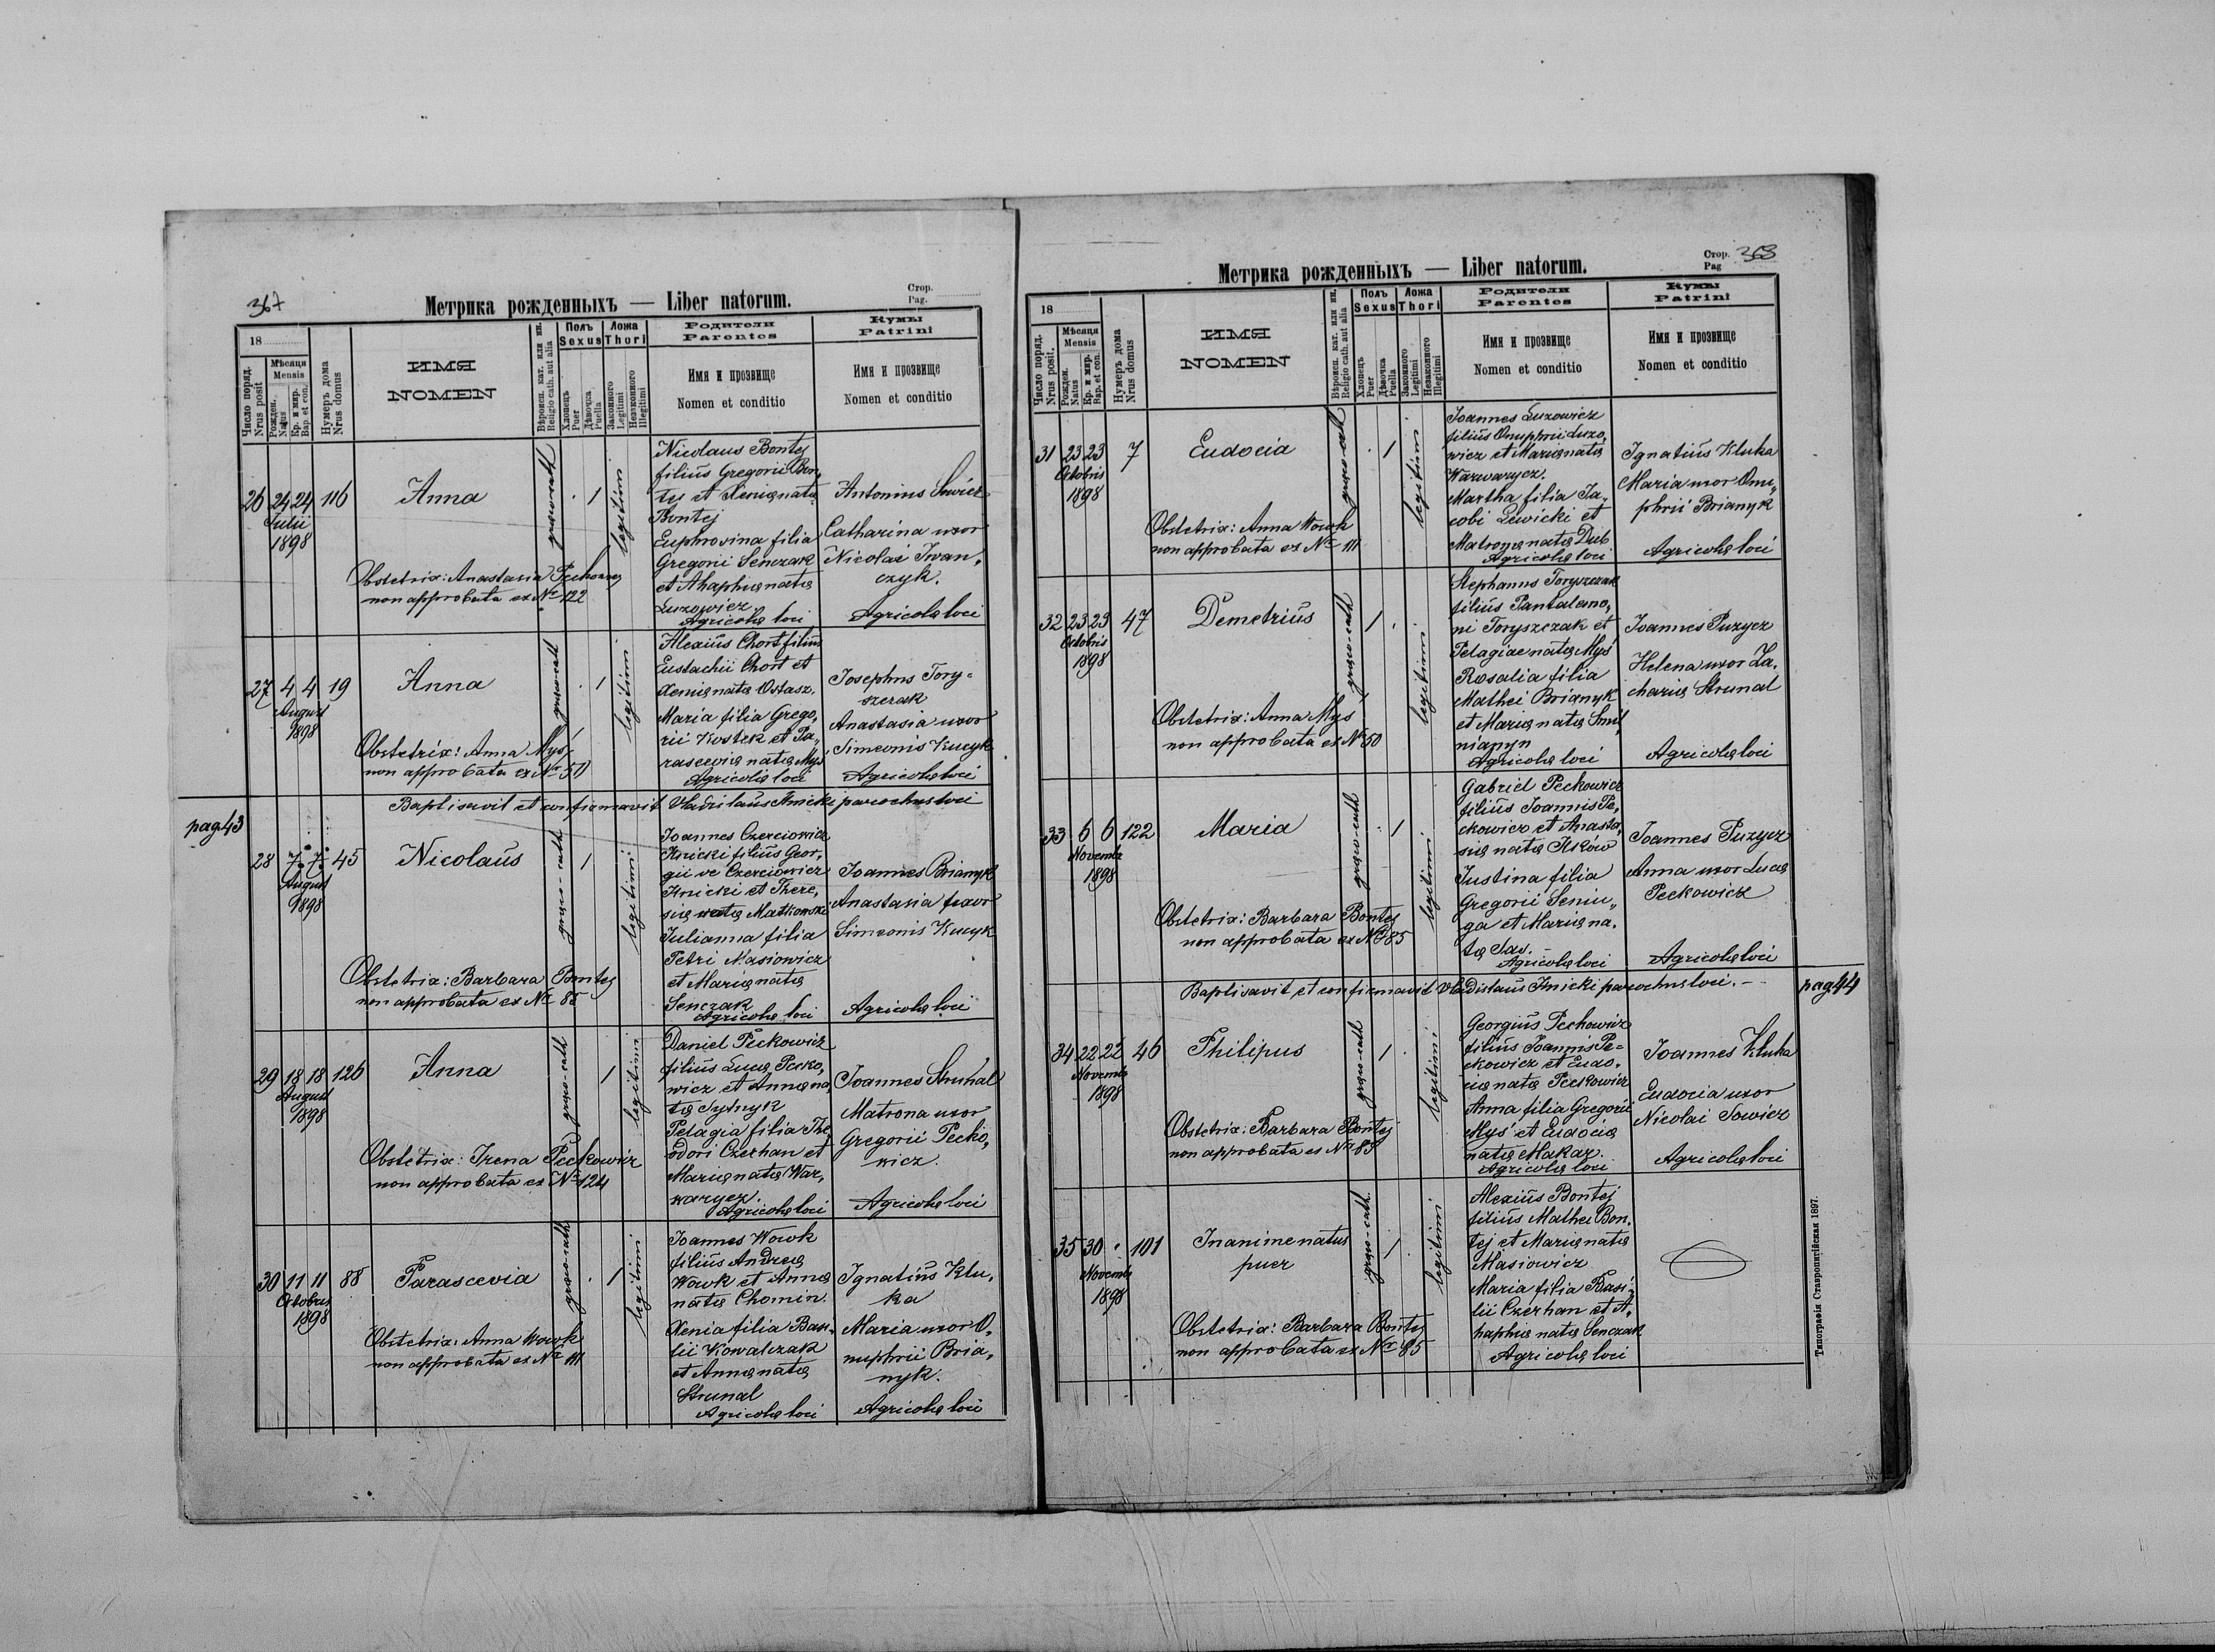 367
Метрика рожденныхъ — Liber natorum.
Стор.
Pag.
18
Число поряд.
Nrus posit
Мѣсяця
Mensis
Рожден.
Natus
Кр. и мир.
Bap. et con.
Нумеръ дома
Nrus domus
ИМЯ
NOMEN
Вѣроисп. кат. или ин.
Religio cath. aut alia
Полъ
Sexus
Хлопець
Puer
Дѣвочка
Puella
Ложа
Thori
Законного
Legitimi
Незаконного
Illegitimi
Родители
Parentes
Имя и прозвище
Nomen et conditio
Кумы
Patrini
Имя и прозвище
Nomen et conditio
26 24 24 116
Julii
1898
Anna
graeco-cath
1
legitimi
Obstetrix: Anastasia
non approbata ex Nr 122
Nicolaus Bontej
filius Gregorii Bon„
tej et Xeniae natae
Bontej
Euphrosina filia
Gregorii Senczak
et Ahaphiae natae
Luzowicz
Agricolae loci
Antonius Sowicz
Catharina uxor
Nicolai Iwan„
czyk.
Agricolae loci
27 4 4 19
August
1898
Anna
graeco-cath
1
legitimi
Obstetrix: Anna Myś
non approbata ex Nr 50
Alexius Chort filius
Eustachii Chort et
Xeniae natae Ostasz,
Maria filia Grego„
rii Kostek et Pa„
rasceviae natae Myś
Agricolae loci
Josephus Tory=
szczak
Anastasia uxor
Simeonis Kucyk
Agricolae loci
Baptisavit et confirmavit Vladislaus Ilnicki parochus loci
pag 43
28 7 7 45
August
1898
Nicolaus
graeco-cath
1
legitimi
Obstetrix: Barbara Bontej
non approbata ex Nr 85
Joannes Czerciowicz
Ilnicki filius Geor„
gii de Czerciowicz
Ilnicki et There„
siae natae Matkowska
Julianna filia
Petri Masiowicz
et Mariae natae
Senczak
Agricolae loci
Joannes Brianyk
Anastasia uxor
Simeonis Kucyk
Agricolae loci
29 18 18 126
August
1898
Anna
graeco-cath
1
legitimi
Obstetrix: Irena Peckowicz
non approbata ex Nr 124
Daniel Peckowicz
filius Lucae Pecko„
wicz et Annae na„
tae Sytnyk
Pelagia filia The
odori Czerhan et
Mariae natae War„
warycz.
Agricolae loci
Joannes Struhal
Matrona uxor
Gregorii Pecko„
wicz.
Agricolae loci
30 11 11 88
Octobris
1898
Parascevia
graeco-cath
1
legitimi
Obstetrix: Anna Wowk
non approbata ex Nr 111
Joannes Wowk
filius Andreae
Wowk et Annae
natae Chomin.
Xenia filia Basi„
lii Kowalczak
et Annae natae
Strunal
Agricolae loci
Ignatius Klu„
ka
Maria uxor O„
nuphrii Bria„
nyk.
Agricolae loci
Метрика рожденныхъ — Liber natorum.
Стор.
Pag
368
18
Число поряд.
Nrus posit.
Мѣсяця
Mensis
Рожден.
Natus
Кр. и мир.
Bap. et con.
Нумеръ дома
Nrus domus
ИМЯ
NOMEN
Вѣроисп. кат. или ин.
Religio cath. aut alia
Полъ
Sexus
Хлопець
Puer
Дѣвочка
Puella
Ложа
Thori
Законного
Legitimi
Незаконного
Illegitimi
Родители
Parentes
Имя и прозвище
Nomen et conditio
Кумы
Patrini
Имя и прозвище
Nomen et conditio
31 23 23 7
Octobris
1898
Eudocia
graeco-cath
1
legitimi
Obstetrix: Anna Wowk
non approbata ex Nr 111
Joannes Luzowicz
filius Onuphrii Luzo„
wicz et Mariae natae
Warwarycz.
Martha filia Ja„
cobi Lewicki et
Matronae natae Dub
Agricolae loci
Ignatius Kluka
Maria uxor Onu„
phrii Brianyk
Agricolae loci
32 23 23 47
Octobris
1898
Demetrius
graeco-cath
1
legitimi
Obstetrix: Anna Myś
non approbata ex Nr 50
Stephanus Toryszczak
filius Pantalemo„
ni Toryszczak et
Pelagiae natae Myś
Rosalia filia
Mathei Brianyk
et Mariae natae
Agricolae loci
Joannes Puzycz
Helena uxor Za„
chariae Strunal
Agricolae loci
33 6 6 122
Novemb
1898
Maria
graeco-cath
1
legitimi
Obstetrix: Barbara Bontej
non approbata ex Nr 85
Gabriel Peckowicz
filius Joannis Pe„
ckowicz et Anasta„
siae natae Ilków
Justina filia
Gregorii Seniu„
ga et Mariae na„
tae Sas.
Agricolae loci
Joannes Puzycz
Anna uxor Lucae
Peckowicz
Agricolae loci
Baptisavit et confirmavit Vladislaus Ilnicki parochus loci. —
pag 44
34 22 22 46
Novemb
1898
Philipus
graeco-cath
1
legitimi
Obstetrix: Barbara Bontej
non approbata ex Nr 85
Georgius Peckowicz
filius Joannis Pe=
ckowicz et Eudo„
ciae natae Peckowicz
Anna filia Gregorii
Myś et Eudociae
natae Makar.
Agricolae loci
Joannes Kluka
Eudocia uxor
Nicolai Sowicz
Agricolae loci
35 30 101
Novemb
1898
Inanime natus
puer
graeco-cath.
1
legitimi
Obstetrix: Barbara Bontej
non approbata ex Nr 85
Alexius Bontej
filius Mathei Bon„
tej et Mariae natae
Masiowicz
Maria filia Basi„
lii Czerhan et A„
haphiae natae Senczak
Agricolae loci
Типографія Ставропигійская 1897.